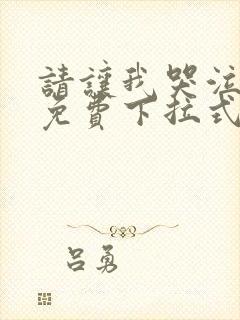 請讓我哭泣
免費下拉式
吕勇